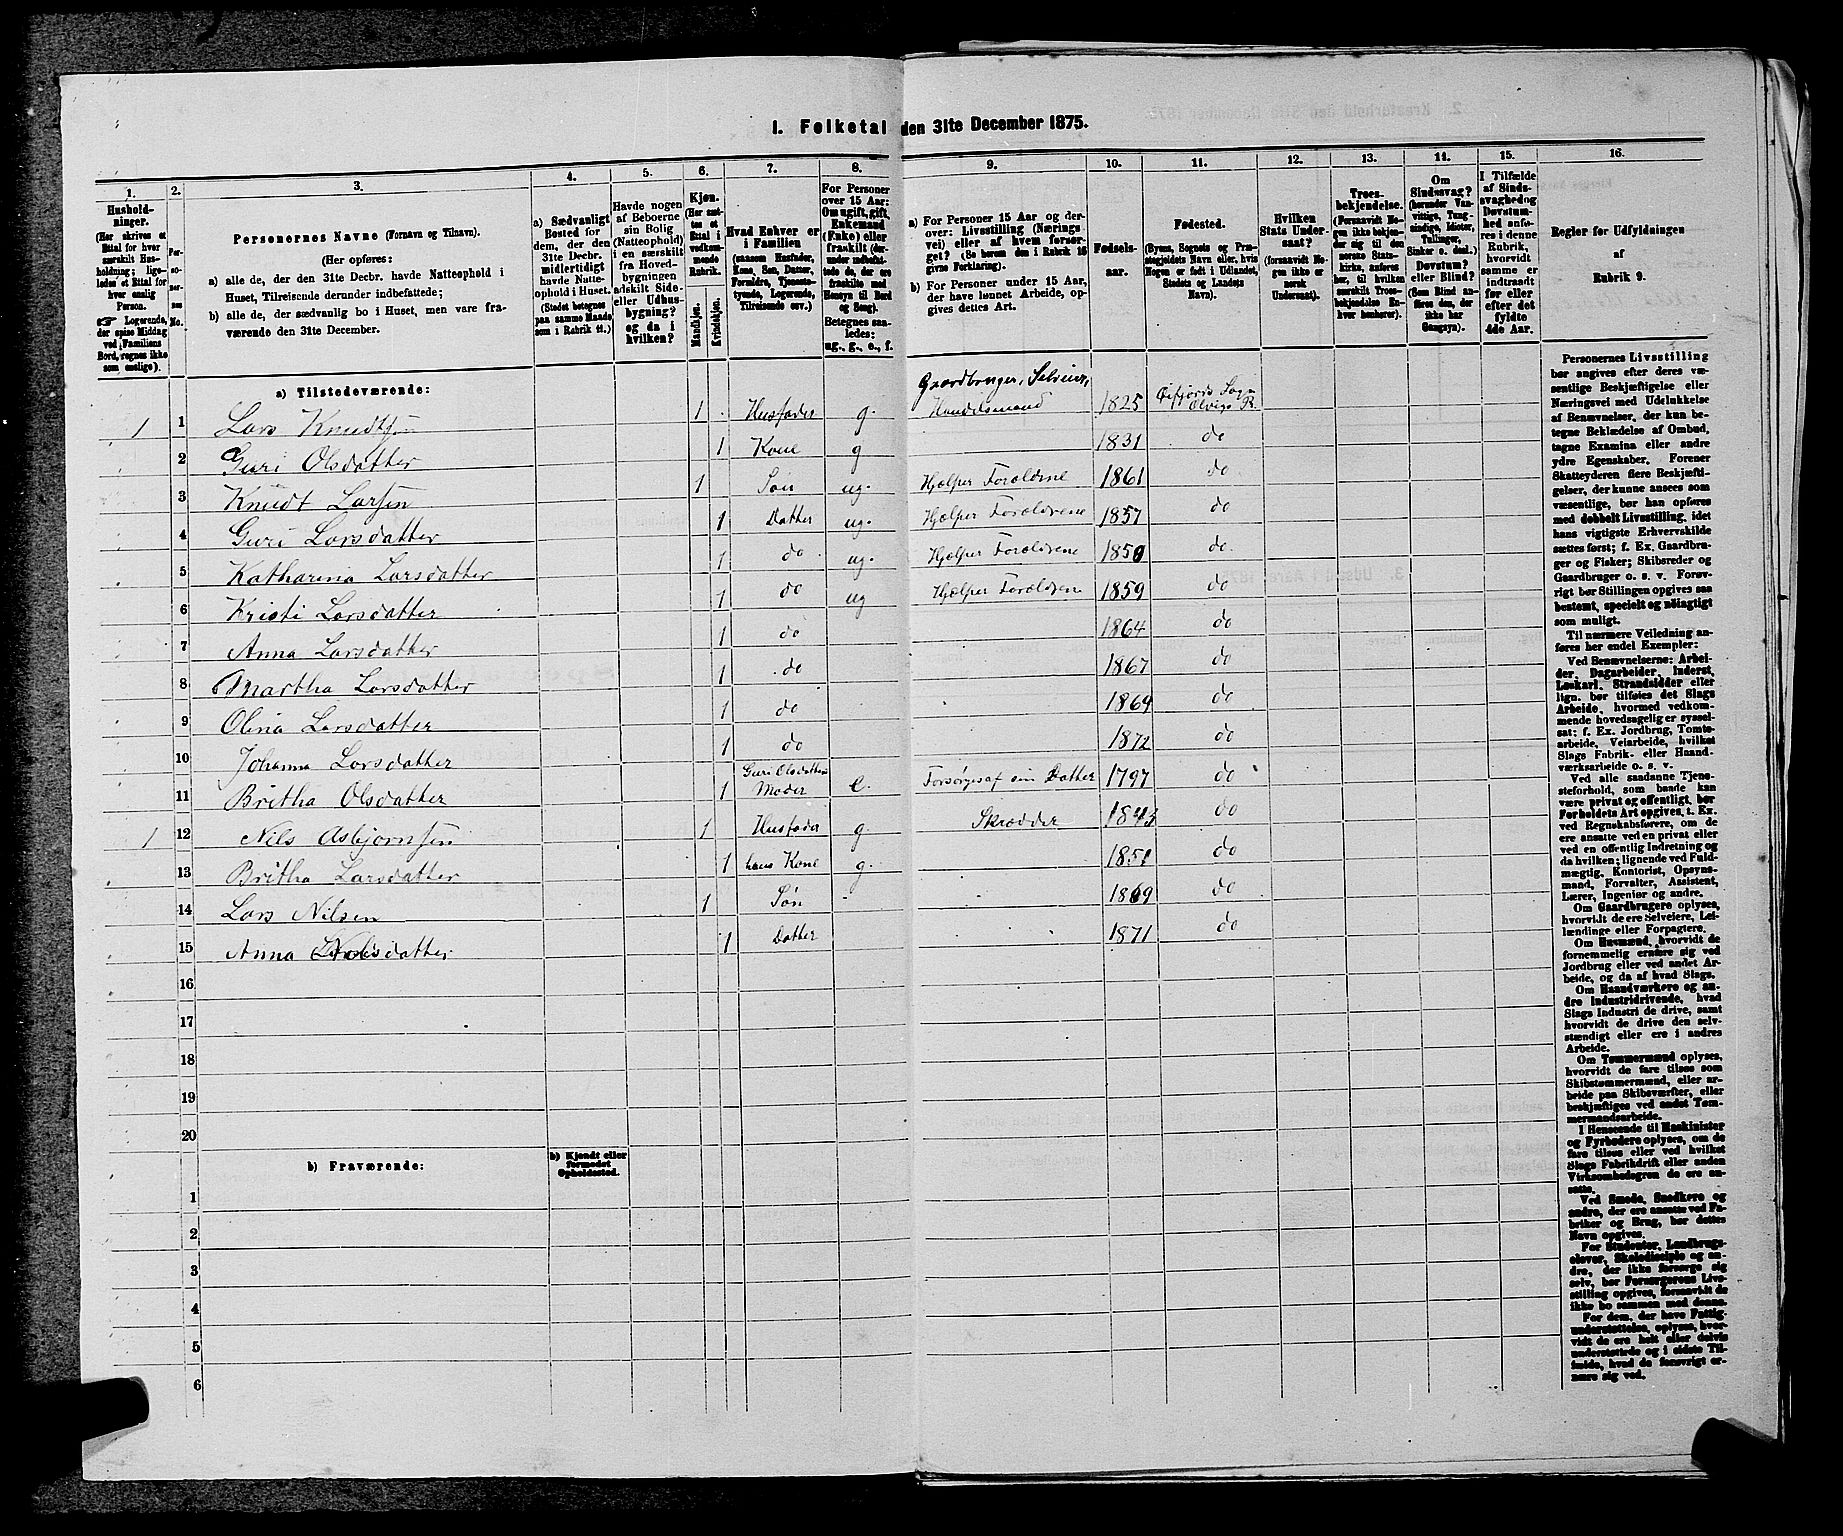 I. Folketal den 31te December 1875.
1. 2. 3. 4. 5. 6. 7. 8. 9. 10. 11. 12. 13. 14. 15. 16.
Husholdninger.
(Her skrives et Ettal for hver særskilt Husholdning; ligeledes et Ettal for hver enslig Person.
Logerende, der spise Middag ved Familiens Bord, regnes ikke som enslige).
Personernes No.
Personernes Navne (Fornavn og Tilnavn).
(Her opføres:
a) alle de, der den 31te Decbr. havde Natteophold i Huset, Tilreisende derunder indbefattede;
b) alle de, der sædvanlig bo i Huset, men vare fraværende den 31te December.
a) Sædvanligt Bosted for dem, der den 31te Decbr. midlertidigt havde Natteophold i Huset. (Stedet betegnes paa samme Maade som i Rubrik 11.)
Havde nogen af Beboerne sin Bolig (Natteophold) i en særskilt fra Hovedbygningen adskilt Side- eller Udhusbygning? og da i hvilken?
Kjøn.
(Her sættes et Ettal i vedkommende Rubrik.
Mandkjøn.
Kvindekjøn.
Hvad Enhver er i Familien
(saasom Husfader, Kone, Søn, Datter, Forældre, Tjenestetyende, Logerende, Tilreisende osv.)
For Personer over 15 Aar: Om ugift, gift, Enkemand (Enke) eller fraskilt (derunder indbefattede de, der ere fraskilte med Hensyn til Bord og Seng).
Betegnes saaledes: ug., g., e., f.
a) For Personer 15 Aar og derover: Livsstilling (Næringsvei) eller af hvem forsørget? (Se herom den i Rubrik 16 givne Forklaring).
b) For Personer under 15 Aar, der have lønnet Arbeide, opgives dettes Art.
Fødselsaar.
Fødested.
(Byens, Sognets og Præstegjeldets Navn eller, hvis Nogen er født i Udlandet, Stedets og Landets Navn).
Hvilken Stats Undersaat?
(forsaavidt Nogen ikke er norsk Undersaat).
Troesbekjendelse.
(Forsaavidt Nogen ikke bekjender sig til den norske Statskirke, anføres her, til hvilket særskilt Troesbekjendelse Enhver henhører).
Om Sindssvag? (herunder Vanvittige, Tungsindige, Idioter, Tullinger, Sinker o. desl.) Døvstum? eller Blind? (Som Blind anføres den, der ikke har Gangsyn).
I Tilfælde af Sindssvaghed og Døvstumhed anføres i denne Rubrik, hvorvidt samme er indtraadt før eller efter det fyldte 4de Aar.
Regler for Udfyldningen af Rubrik 9.
a) Tilstedeværende:
1 1 Lars Knudtsen 1 Husfader g. Gaardbruger, Selveier, Handelsmand 1825 Sogn P.
2 Guri Olsdatter 1 Kone g 1831 do
3 Knudt Larsen 1 Søn ug. Hjælper Forældrne 1861 do
4 Guri Larsdatter 1 Datter ug. Hjælper Forældrene 1857 do
5 Katharina Larsdatter 1 do ug. Hjælper Forældrene 1850 do
6 Kristi Larsdatter 1 do ug Hjælper Forældrene 1859 do
7 Anna Larsdatter 1 do 1864 do
8 Martha Larsdatter 1 do 1867 do
9 Olina Larsdatter 1 do 1869 do
10 Johanna Larsdatter 1 do 1872 do
11 Britha Olsdatter 1 Guri Olsdatters Moder e. Forsørges af sin Datter 1797 do
1 12 Nils Asbjørnsen 1 Husfader g Skrædder 1843 do
13 Britha Larsdatter 1 hans Kone g. 1851 do
14 Lars Nilsen 1 Søn 1869 do
15 Anna Nilsdatter 1 Datter 1871 do
16
17
18
19
20
b) Fraværende:
b) Kjendt eller formodet Opholdssted.
1
2
3
4
5
6
Personernes Livsstilling bør angives efter deres væsentlige Beskjæftigelse eller Næringsvei med Udelukkelse af Benævnelser, der kun betegne Beklædelse af Ombud, tagne Examina eller andre ydre Egenskaber. Forener Skatteyderen flere Beskjæftigelser, der kunne ansees som væsentlige, bør han opføres med dobbelt Livsstilling, idet hans vigtigste Erhvervskilde sættes først; f. Ex. Gaardbruger og Fisker; Skibsreder og Gaardbruger o. s. v. Forøvrigt bør Stillingen opgives saa bestemt, specielt og nøiagtigt som muligt.
Til nærmere Veiledning anføres her endel Exempler:
Ved Benævnelserne: Arbeider, Dagarbeider, Inderst, Løskarl, Strandsidder eller lign. bør tilføies det Slags Arbeide, hvormed vedkommende hovedsagelig er sysselsat; f. Ex. Jordbrug, Tomtearbeide, Veiarbeide, hvilket Slags Fabrik- eller Haandværksarbeide o. s. v.
Ved alle saadanne Tjenesteforhold, som baade kan være privat og offentligt, bør Forholdets Art opgives, t. Ex. ved Regnskabsførere, om de ere ansatte ved en privat eller en offentlig Indretning og da hvilken; lignende ved Fuldmægtig, Kontorist, Opsynsmand, Forvalter, Assistent, Lærer, Ingeniør og andre.
Om Gaardbrugere oplyses, hvorvidt de ere Selveiere, Leilændinge eller Forpagtere.
Om Husmænd, hvorvidt de fornemmelig ernære sig ved Jordbrug eller ved andet Arbeide, og da af hvad Slags.
Om Haandværkere og andre Industridrivende, hvad Slags Industri de drive, samt hvorvidt de drive den selvstændigt eller ere i andres Arbeide.
Om Tømmermænd oplyses, hvorvidt de fare tilsøs som Skibstømmermænd, eller arbeide paa Skibsværfter, eller beskjæftiges ved andet Tømmermandsarbeide.
I Henseende til Maskinister og Fyrbødere oplyses, om de fare tilsøs eller ved hvilket Slags Fabrikdrift eller anden Virksomhedsgren de ere ansatte.
Ved Smede, Snedkere og andre, der ere ansatte ved Fabriker og Brug, bør dettes Navn opgives.
For Studenter, Landbrugselever, Skoledisciple og andre, der ikke forsørge sig selv, bør Forsørgerens Livsstilling opgives, forsaavidt de ikke bo sammen med denne.
For dem, der have Fattigunderstøttelse, oplyses, hvorvidt de ere helt eller delvis understøttede og i sidste Tilfælde, hvad de forøvrigt ernære sig ved.